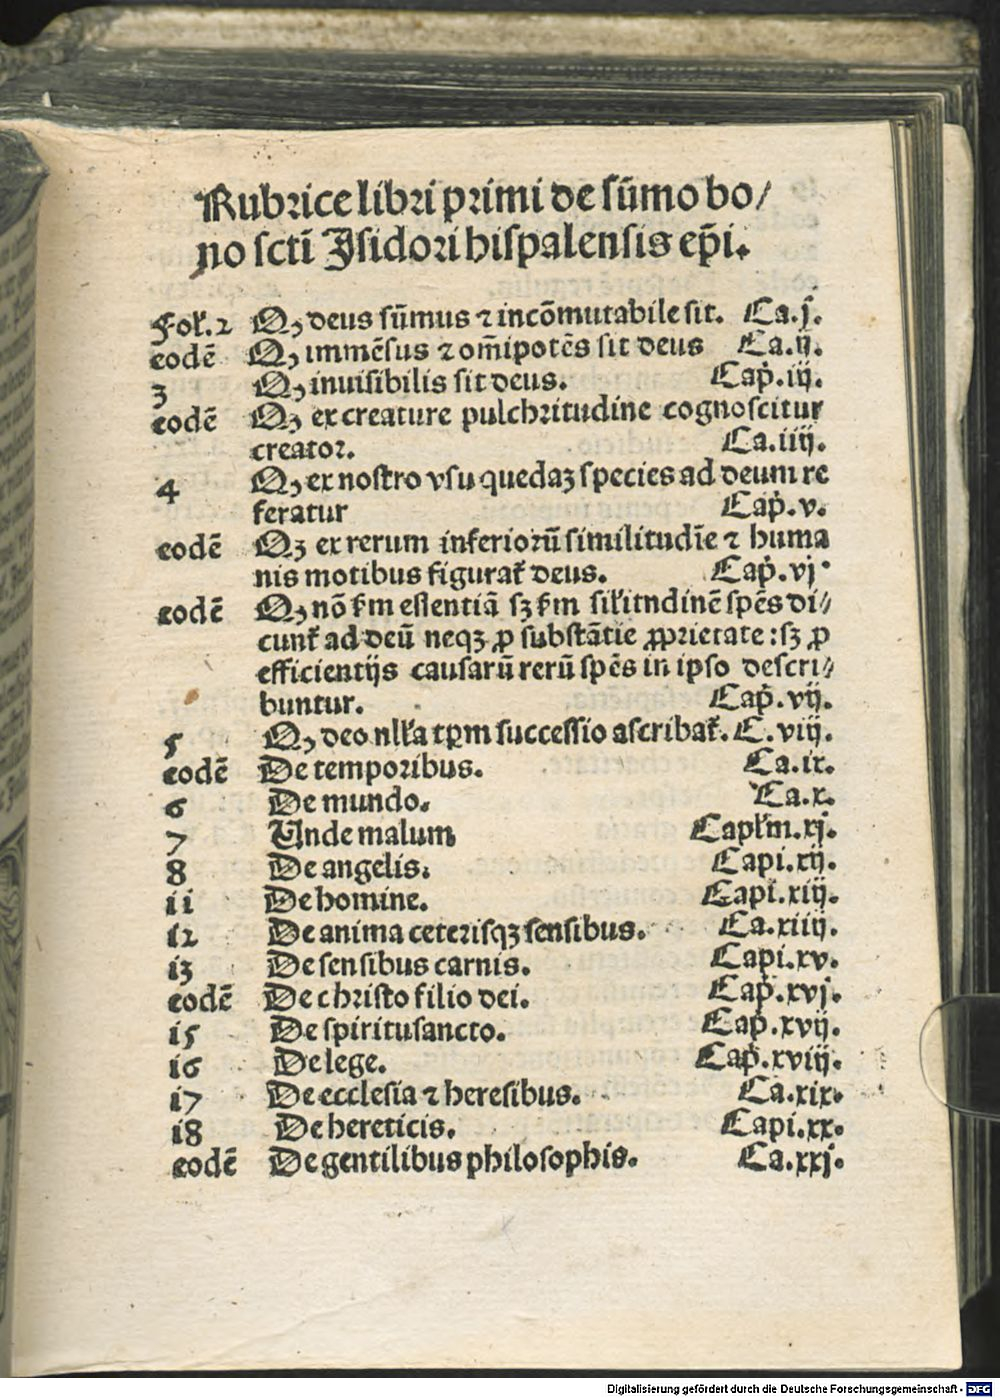 Rubrice libri primi de sūmo bo/
no sctī Isidori hispalensis ep̄i.
Fol'.2 Qꝫ deus sūmus ⁊ incōmutabile sit. Ca.j.
eodē Qꝫ immēsus ⁊ om̄ipotēs sit deus Ca.ij.
3 Qꝫ inuisibilis sit deus. Cap̄.iij.
eodē Qꝫ ex creature pulchritudine cognoscitur
creator. Ca.iiij.
4 Qꝫ ex nostro vsu quedaꝫ species ad deum re
feratur Cap̄.v.
eodē Qꝫ ex rerum inferiorū similitudīe ⁊ huma
nis motibus figurat᷑ deus. Cap̄.vj.
eodē Qꝫ nō ẜm essentiā sꝫ ẜm sil'itndinē spēs di/
cunt᷑ ad deū neqꝫ ꝑ substātie ꝓprietate : sꝫ ꝑ
efficientijs causarū rerū spēs in ipso descri/
buntur. Cap̄.vij.
5 Qꝫ deo nll'a tꝑm successio ascribat᷑. C.viij.
eodē De temporibus. Ca.ix.
6 De mundo. Ca.x.
7 Unde malum Capl'm.xj.
8 De angelis. Capi.xij.
11 De homine. Capi.xiij.
12 De anima ceterisqꝫ sensibus. Ca.xiiij.
13 De sensibus carnis. Capi.xv.
eodē De christo filio dei. Cap̄.xvj.
15 De spiritusancto. Cap̄.xvij.
16 De lege. Cap̄.xviij.
17 De ecclesia ⁊ heresibus. Ca.xix.
18 De hereticis. Capi.xx.
eodē De gentilibus philosophis. Ca.xxj.
Digitalisierung gefördert durch die Deutsche Forschungsgemeinschaft - DFG